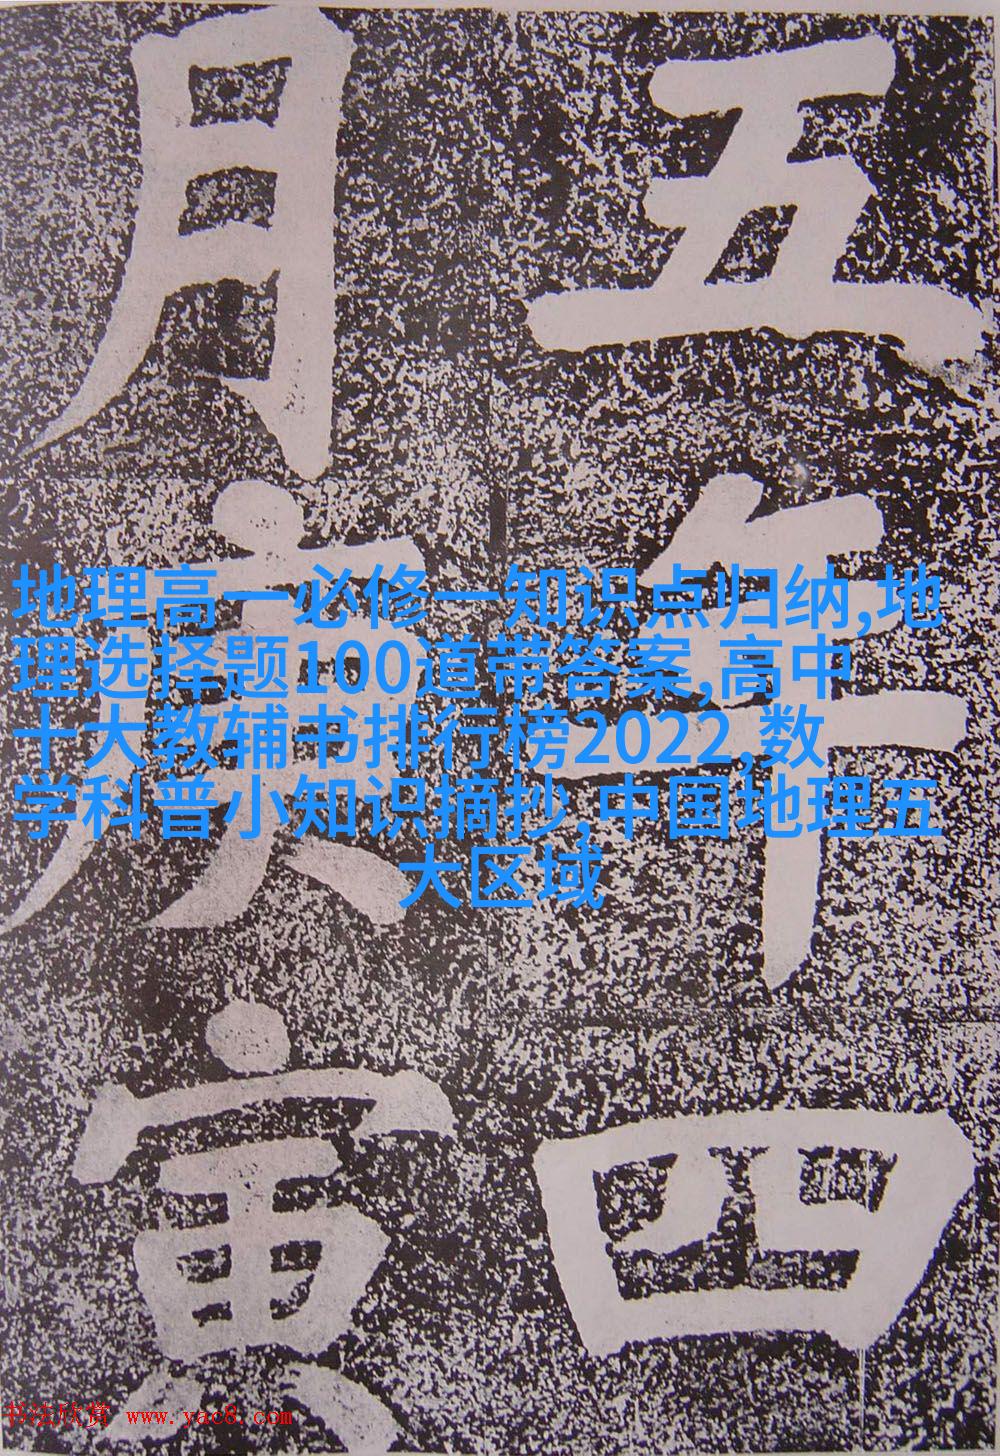 五年四
月庚寅
地理高一必修一知识点归纳,地
理选择题100道带答案,高中
十大教辅书排行榜2022,数
学科普小知识摘抄,中国地理五
大区域
书法欣赏 www.yac8.com